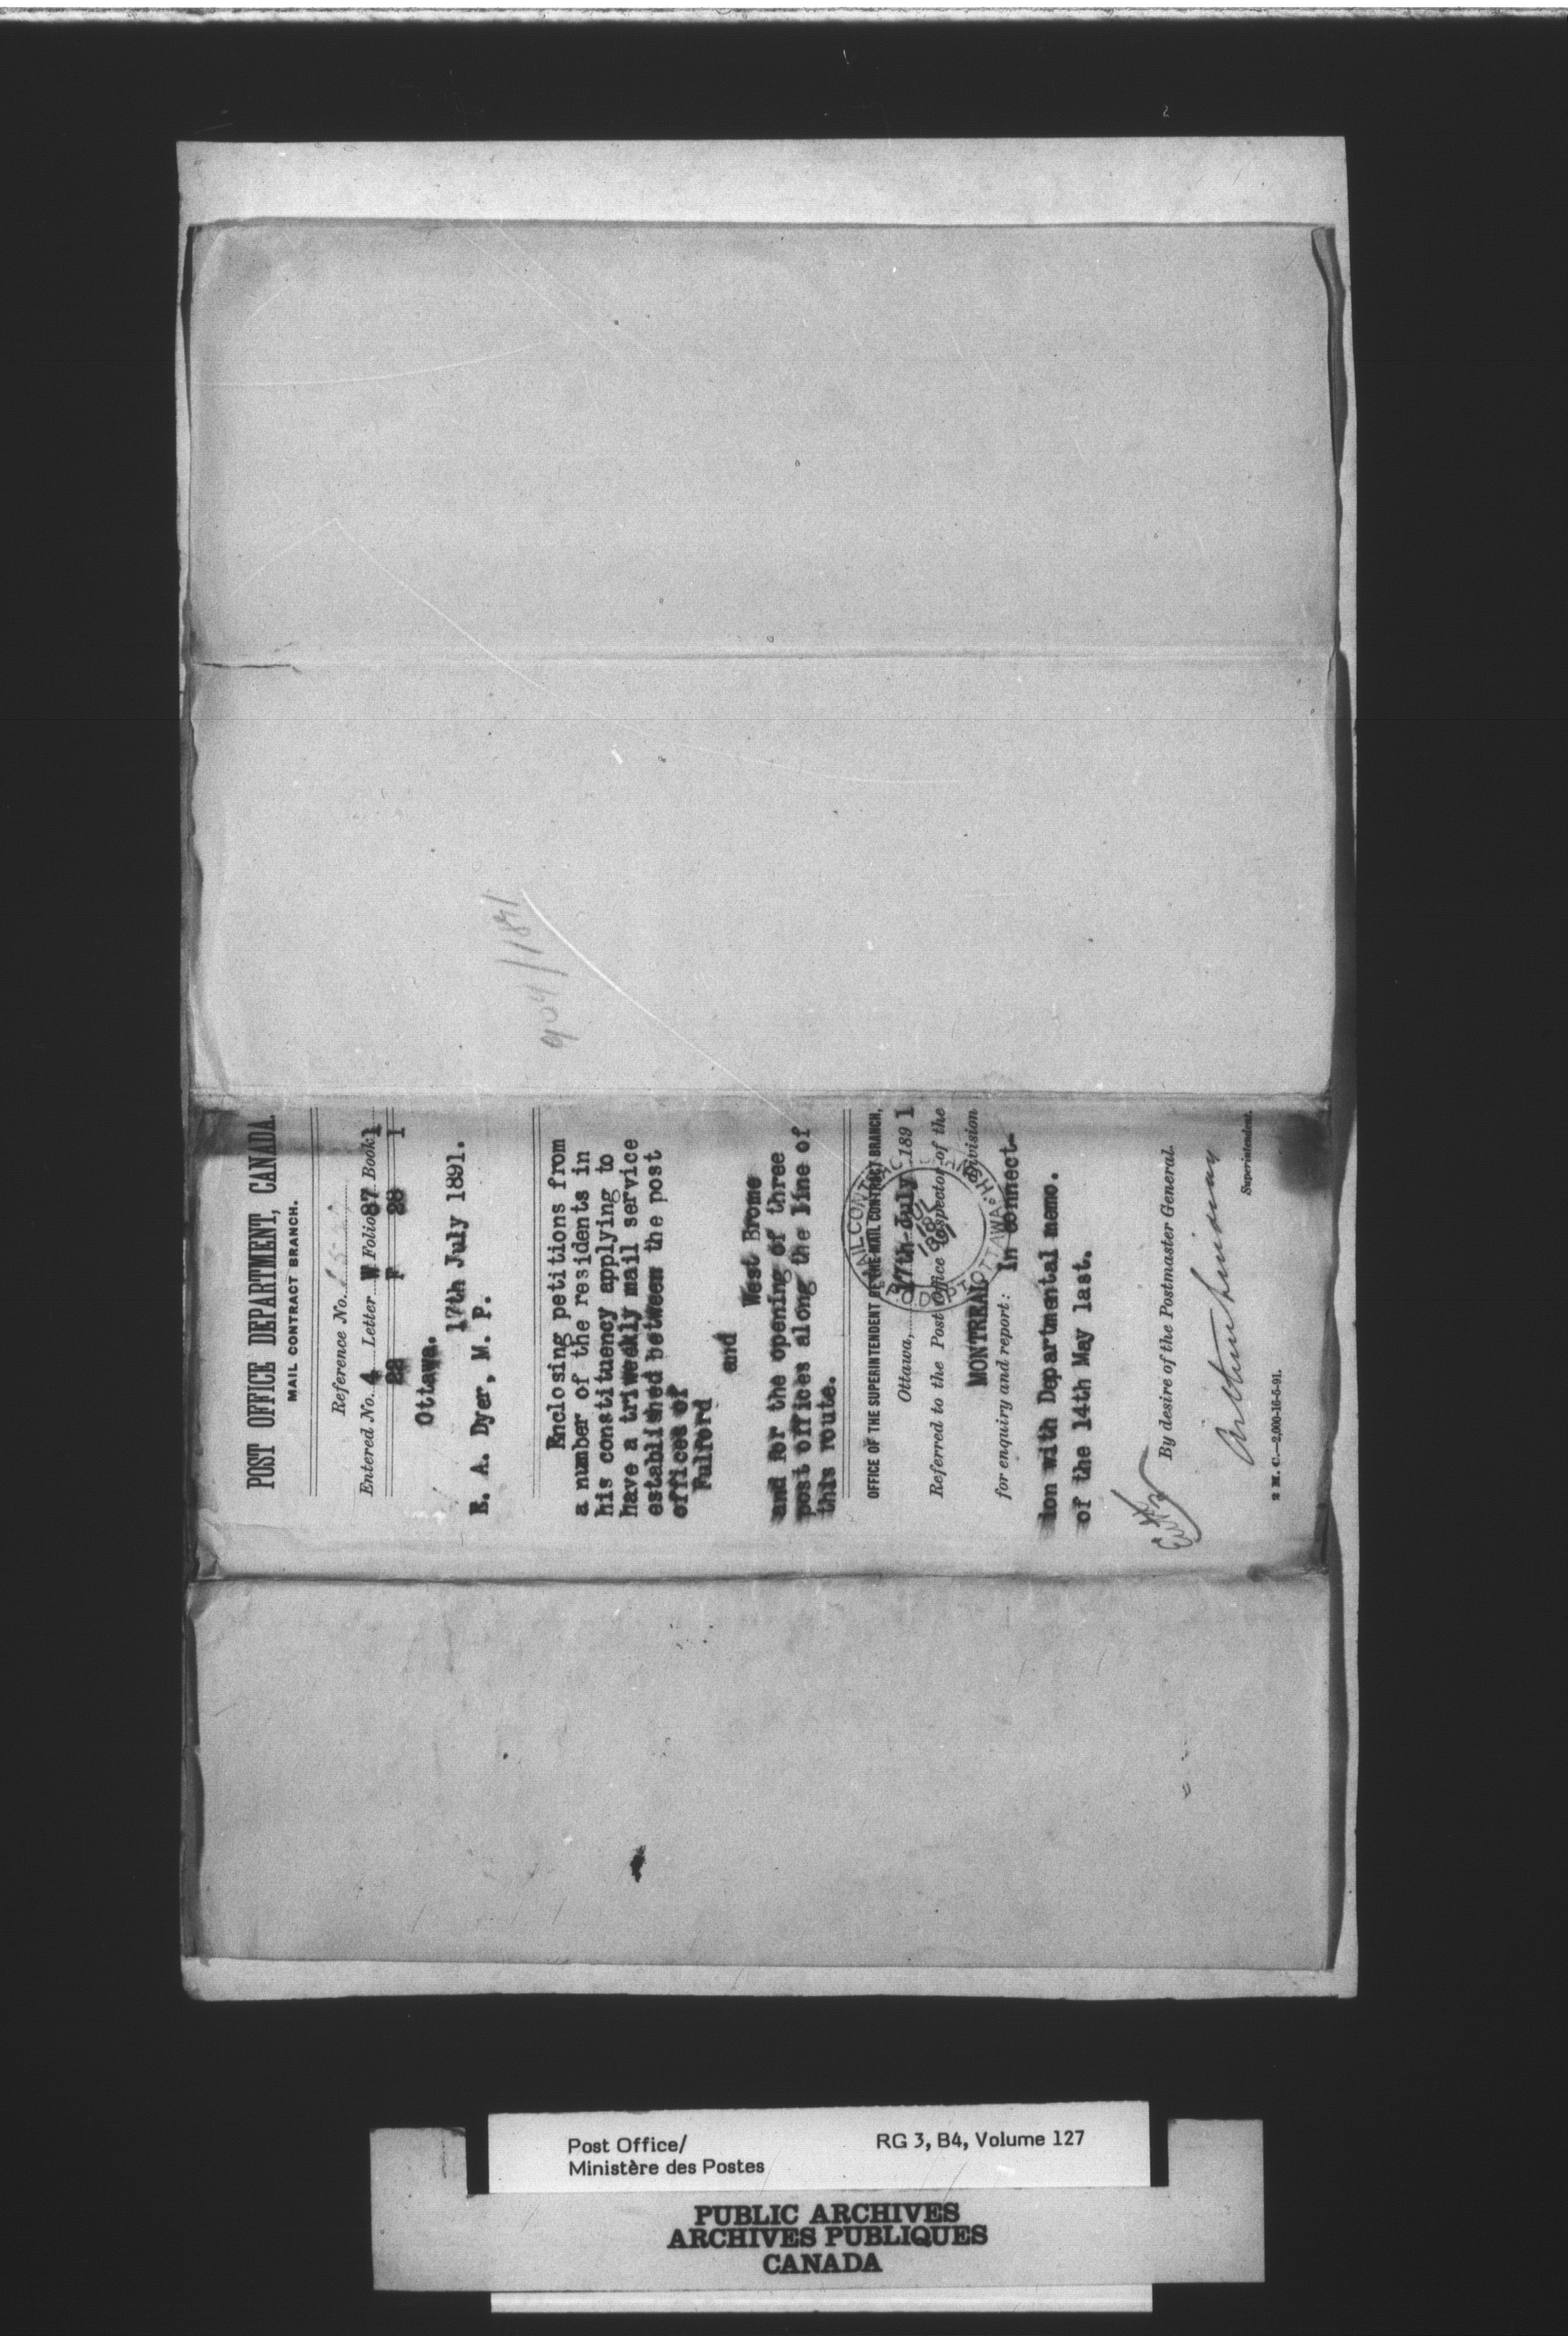 POST OFFICE DEPARTMENT, CANADA.
MAIL CONTRACT BRANCH.
Reference No.
Entered No. 4 Letter W Folio 87 Book 1
22 F 28 1
Ottawa.
17th July 1891.
E. A. Dyer, M. P.
Enclosing petitions from
a number of the residents in
his constituency applying to
have a triweekly mail service
established between the post
offices of
Fulford
and
West Brome
and for the opening of three
post offices along the line of
this route.
OFFICE OF THE SUPERINTENDENT OF THE MAIL CONTRACT BRANCH,
Ottawa, 17th July 1891
Referred to the Post Office Inspector of the
MONTREAL Division
for enquiry and report: In connect-
ion with Departmental memo.
of the 14th May last.
By desire of the Postmaster General.
Superintendent.
2 M. C.—2,000-16-5-91.
904/1891
Post Office/
Ministère des Postes
RG 3, B4, Volume 127
PUBLIC ARCHIVES
ARCHIVES PUBLIQUES
CANADA